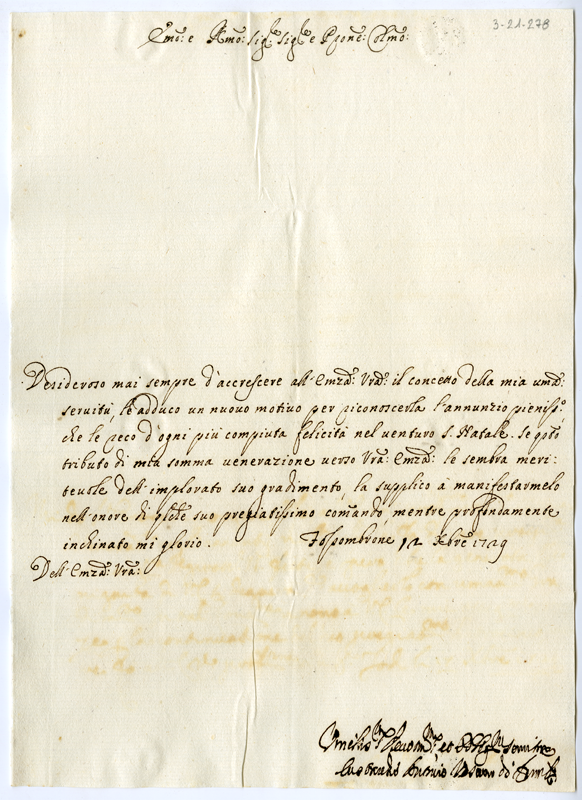 3-21-278
Emo: e Rmo: sigre sigre e Prone: Colmo:
Desideroso mai sempre d'accrescere all'Emza: Vra: il concetto della mia uma:
servitù, le adduco un nuovo motivo per riconoscerla l'annunzio pieniss:o
che le reco d'ogni più compiuta felicità nel venturo S. Natale. Se
tributo di mia somma venerazione verso Vra: Emza: le sembra meri-
tevole dell'implorato suo gradimento, la supplico à manifestarmelo
nell'onore di suo pregiatissimo comando, mentre profondamente
inchinato mi glorio. Fossombrone 12 Xbre 1729
Dell'Emza: Vra:
Umiliss: Devotm: et Obblig: servitre
Antonio